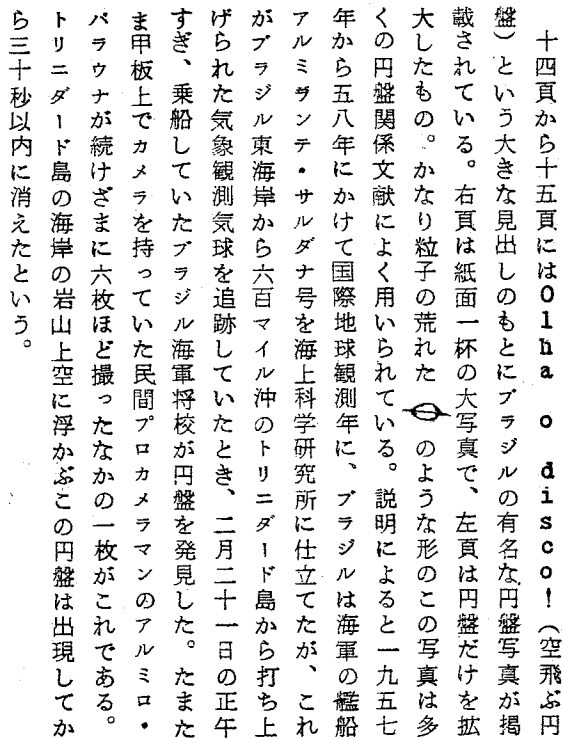 十四頁から十五頁にはOlha o disco!(空飛ぶ円
盤)という大きな見出しのもとにブラジルの有名な円盤写真が掲
載されている。右頁は紙面一杯の大写真で、左頁は円盤だけを拡
大したもの。かなり粒子の荒れた のような形のこの写真は多
くの円盤関係文献によく用いられている。説明によると一九五七
年から五八年にかけて国際地球観測年に、ブラジルは海軍の艦船
アルミランテ・サルダナ号を海上科学研究所に仕立てたが、これ
がブラジル東海岸から六百マイル沖のトリニダード島から打ち上
げられた気象観測気球を追跡していたとき、二月二十一日の正午
すぎ、乗船していたブラジル海軍将校が円盤を発見した。たまた
ま甲板上でカメラを持っていた民間プロカメラマンのアルミロ・
バラウナが続けざまに六枚ほど撮ったなかの一枚がこれである。
トリニダード島の海岸の岩山上空に浮かぶこの円盤は出現してか
ら三十秒以内に消えたという。